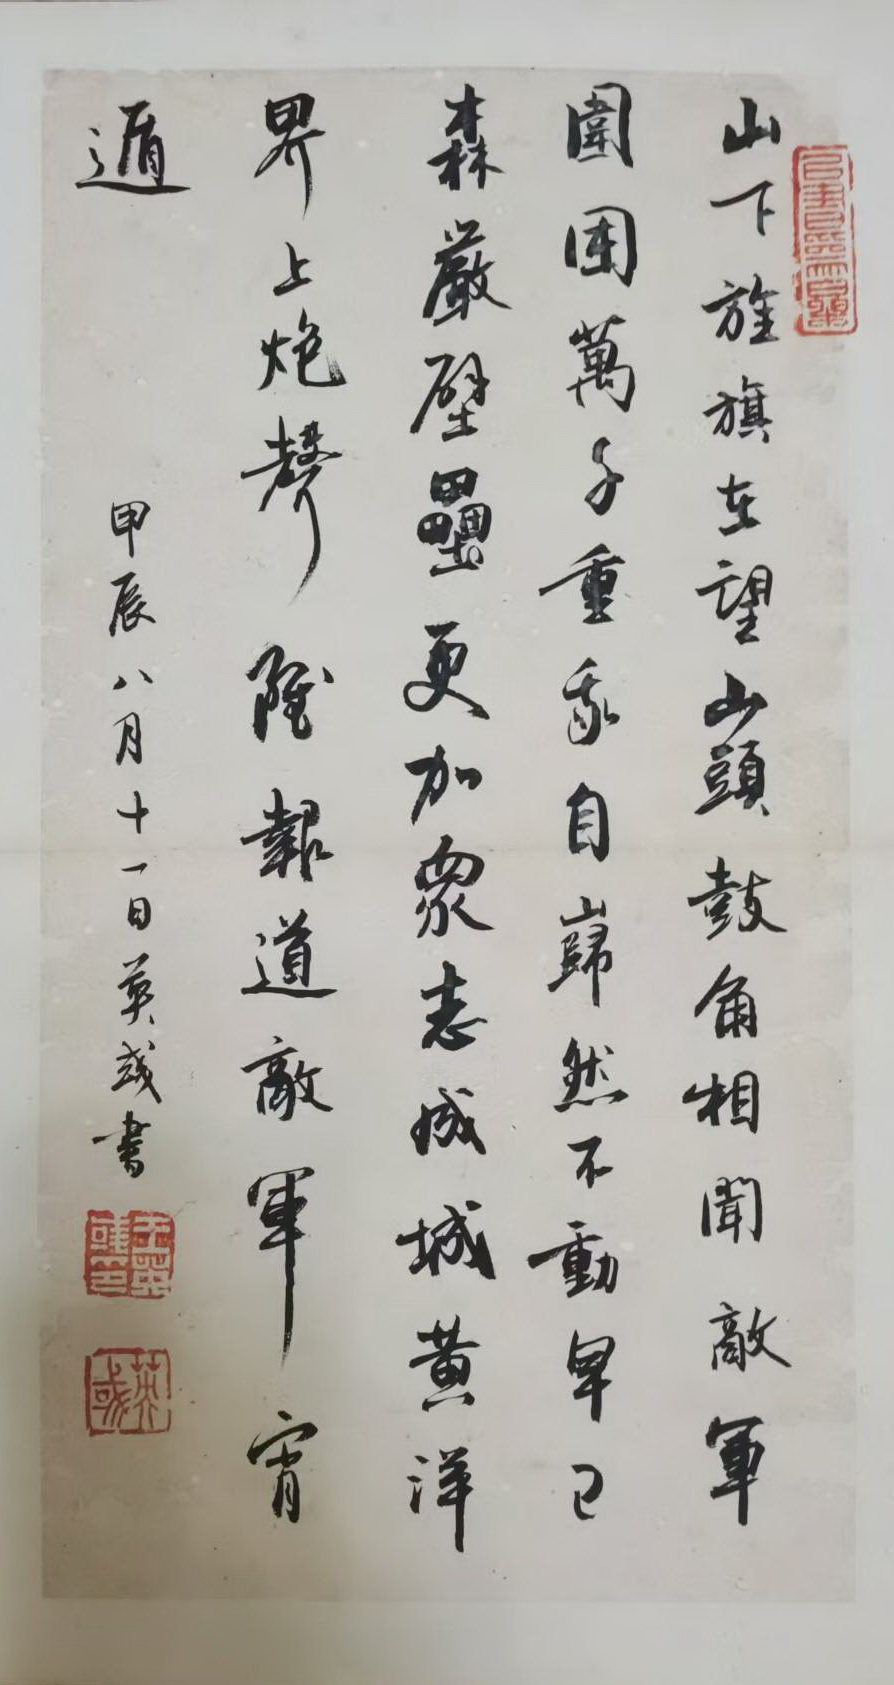 山下旌旗在望山頭鼓角相聞敵軍
圍困萬千重我自巋然不動早已
森嚴壁壘更加眾志成城黃洋
界上炮聲隆報道敵軍宵
遁
甲辰八月十一日英或書